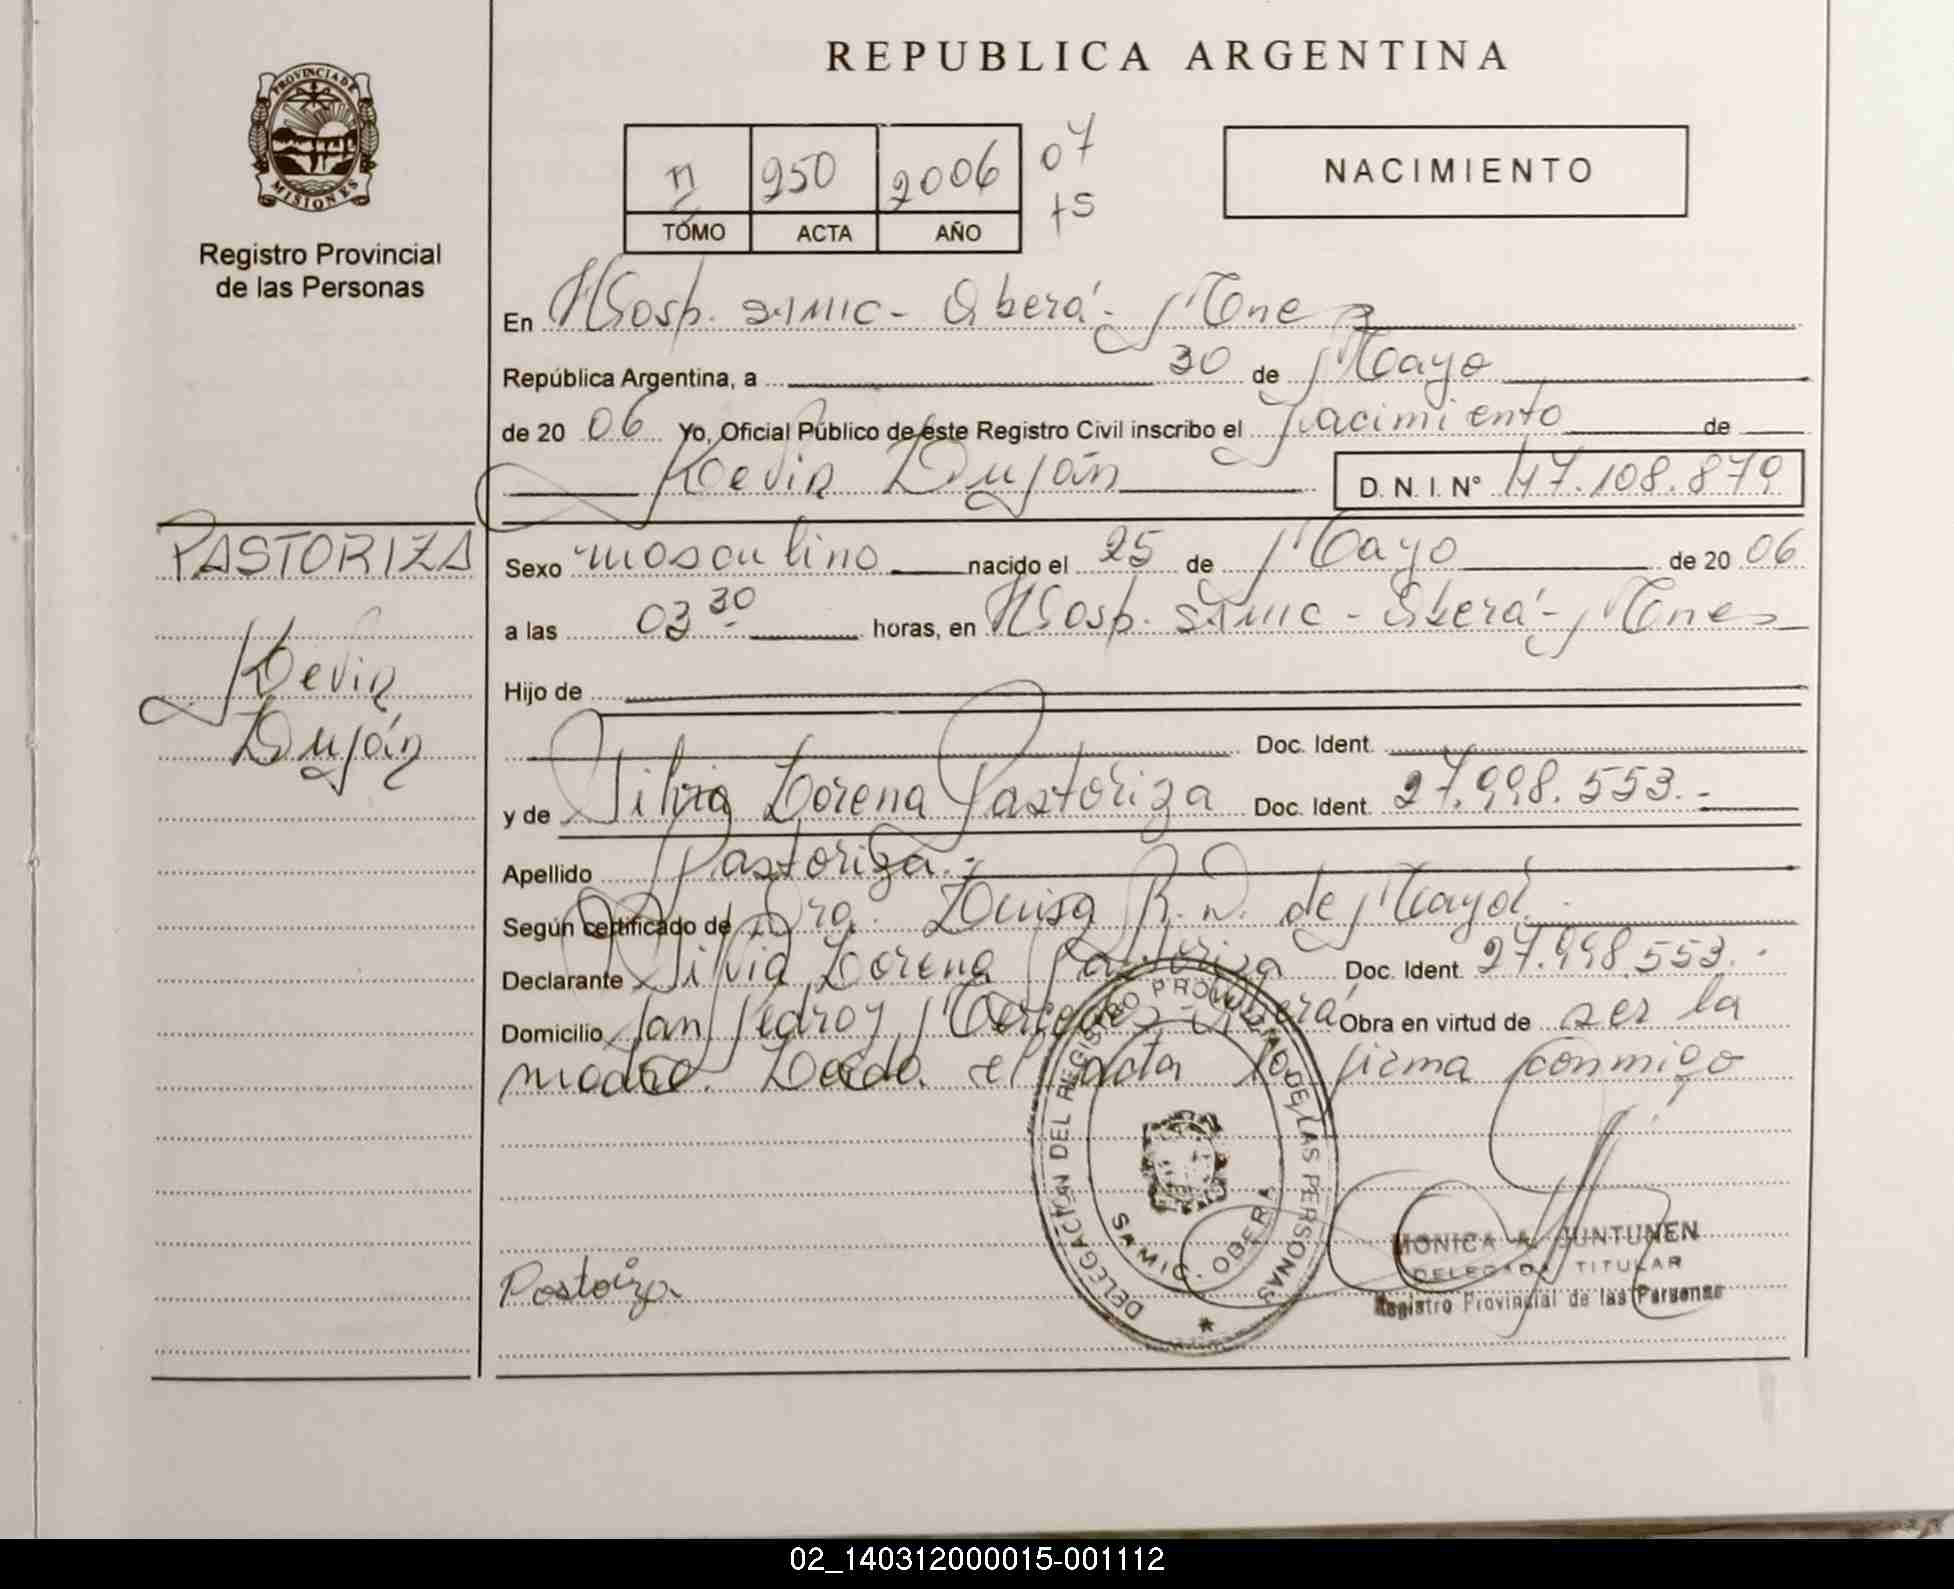 REPUBLICA ARGENTINA
PROVINCIA DE MISIONES
Registro Provincial
de las Personas
950 2006 07
TOMO ACTA AÑO
NACIMIENTO
En Hosp. SAMIC - Oberá - Mnes
República Argentina, a 30 de Mayo
de 20 06 Yo, Oficial Público de este Registro Civil inscribo el Nacimiento de
Kevin Luján D. N. I. N° 47.108.879
PASTORIZA
Kevin
Luján
Sexo masculino nacido el 25 de Mayo de 20 06
a las 03 30 horas, en Hosp. SAMIC - Oberá - Mnes
Hijo de
Doc. Ident.
y de Silvia Lorena Pastoriza Doc. Ident. 27.998.553.-
Apellido Pastoriza.-
Según certificado de Dra. Luisa R. N. de Mayol.
Declarante Silvia Lorena Pastoriza Doc. Ident. 27.998.553.-
Domicilio San Pedro y Mercedes - Oberá Obra en virtud de ser la
madre. Leida el acta la firma conmigo
DELEGACION DEL REGISTRO PROVINCIAL DE LAS PERSONAS
SAMIC - OBERA
Pastoriza
MONICA A. JUNTUNEN
DELEGADA TITULAR
Registro Provincial de las Personas
02_140312000015-001112